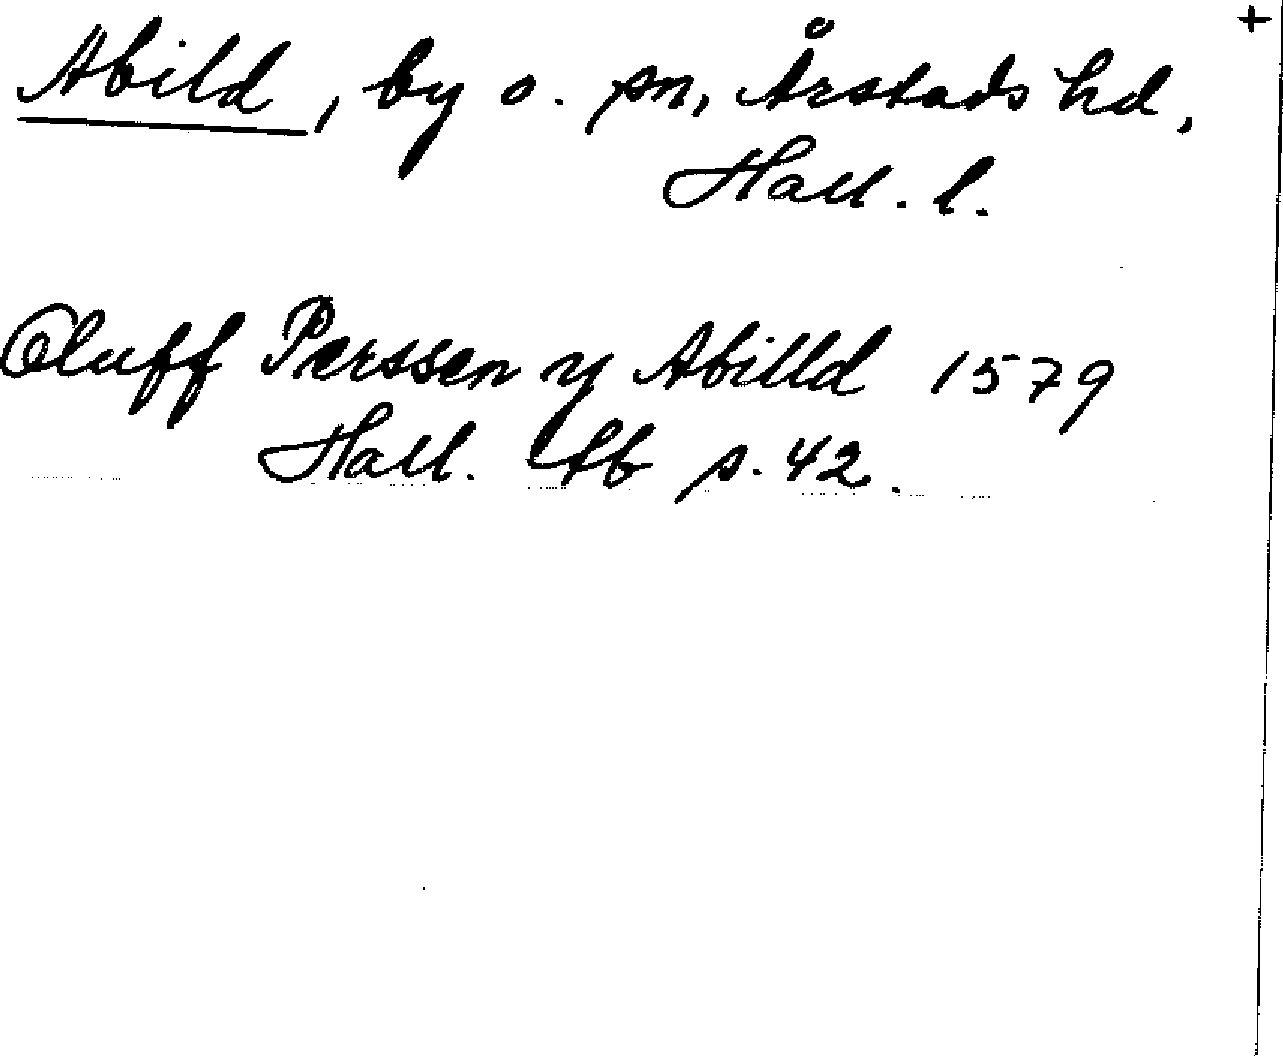 +
Abild, by o. sn, Årstads hd,
Hall. l.
Oluff Pærssen y Abilld 1579
Hall. lb s. 42.